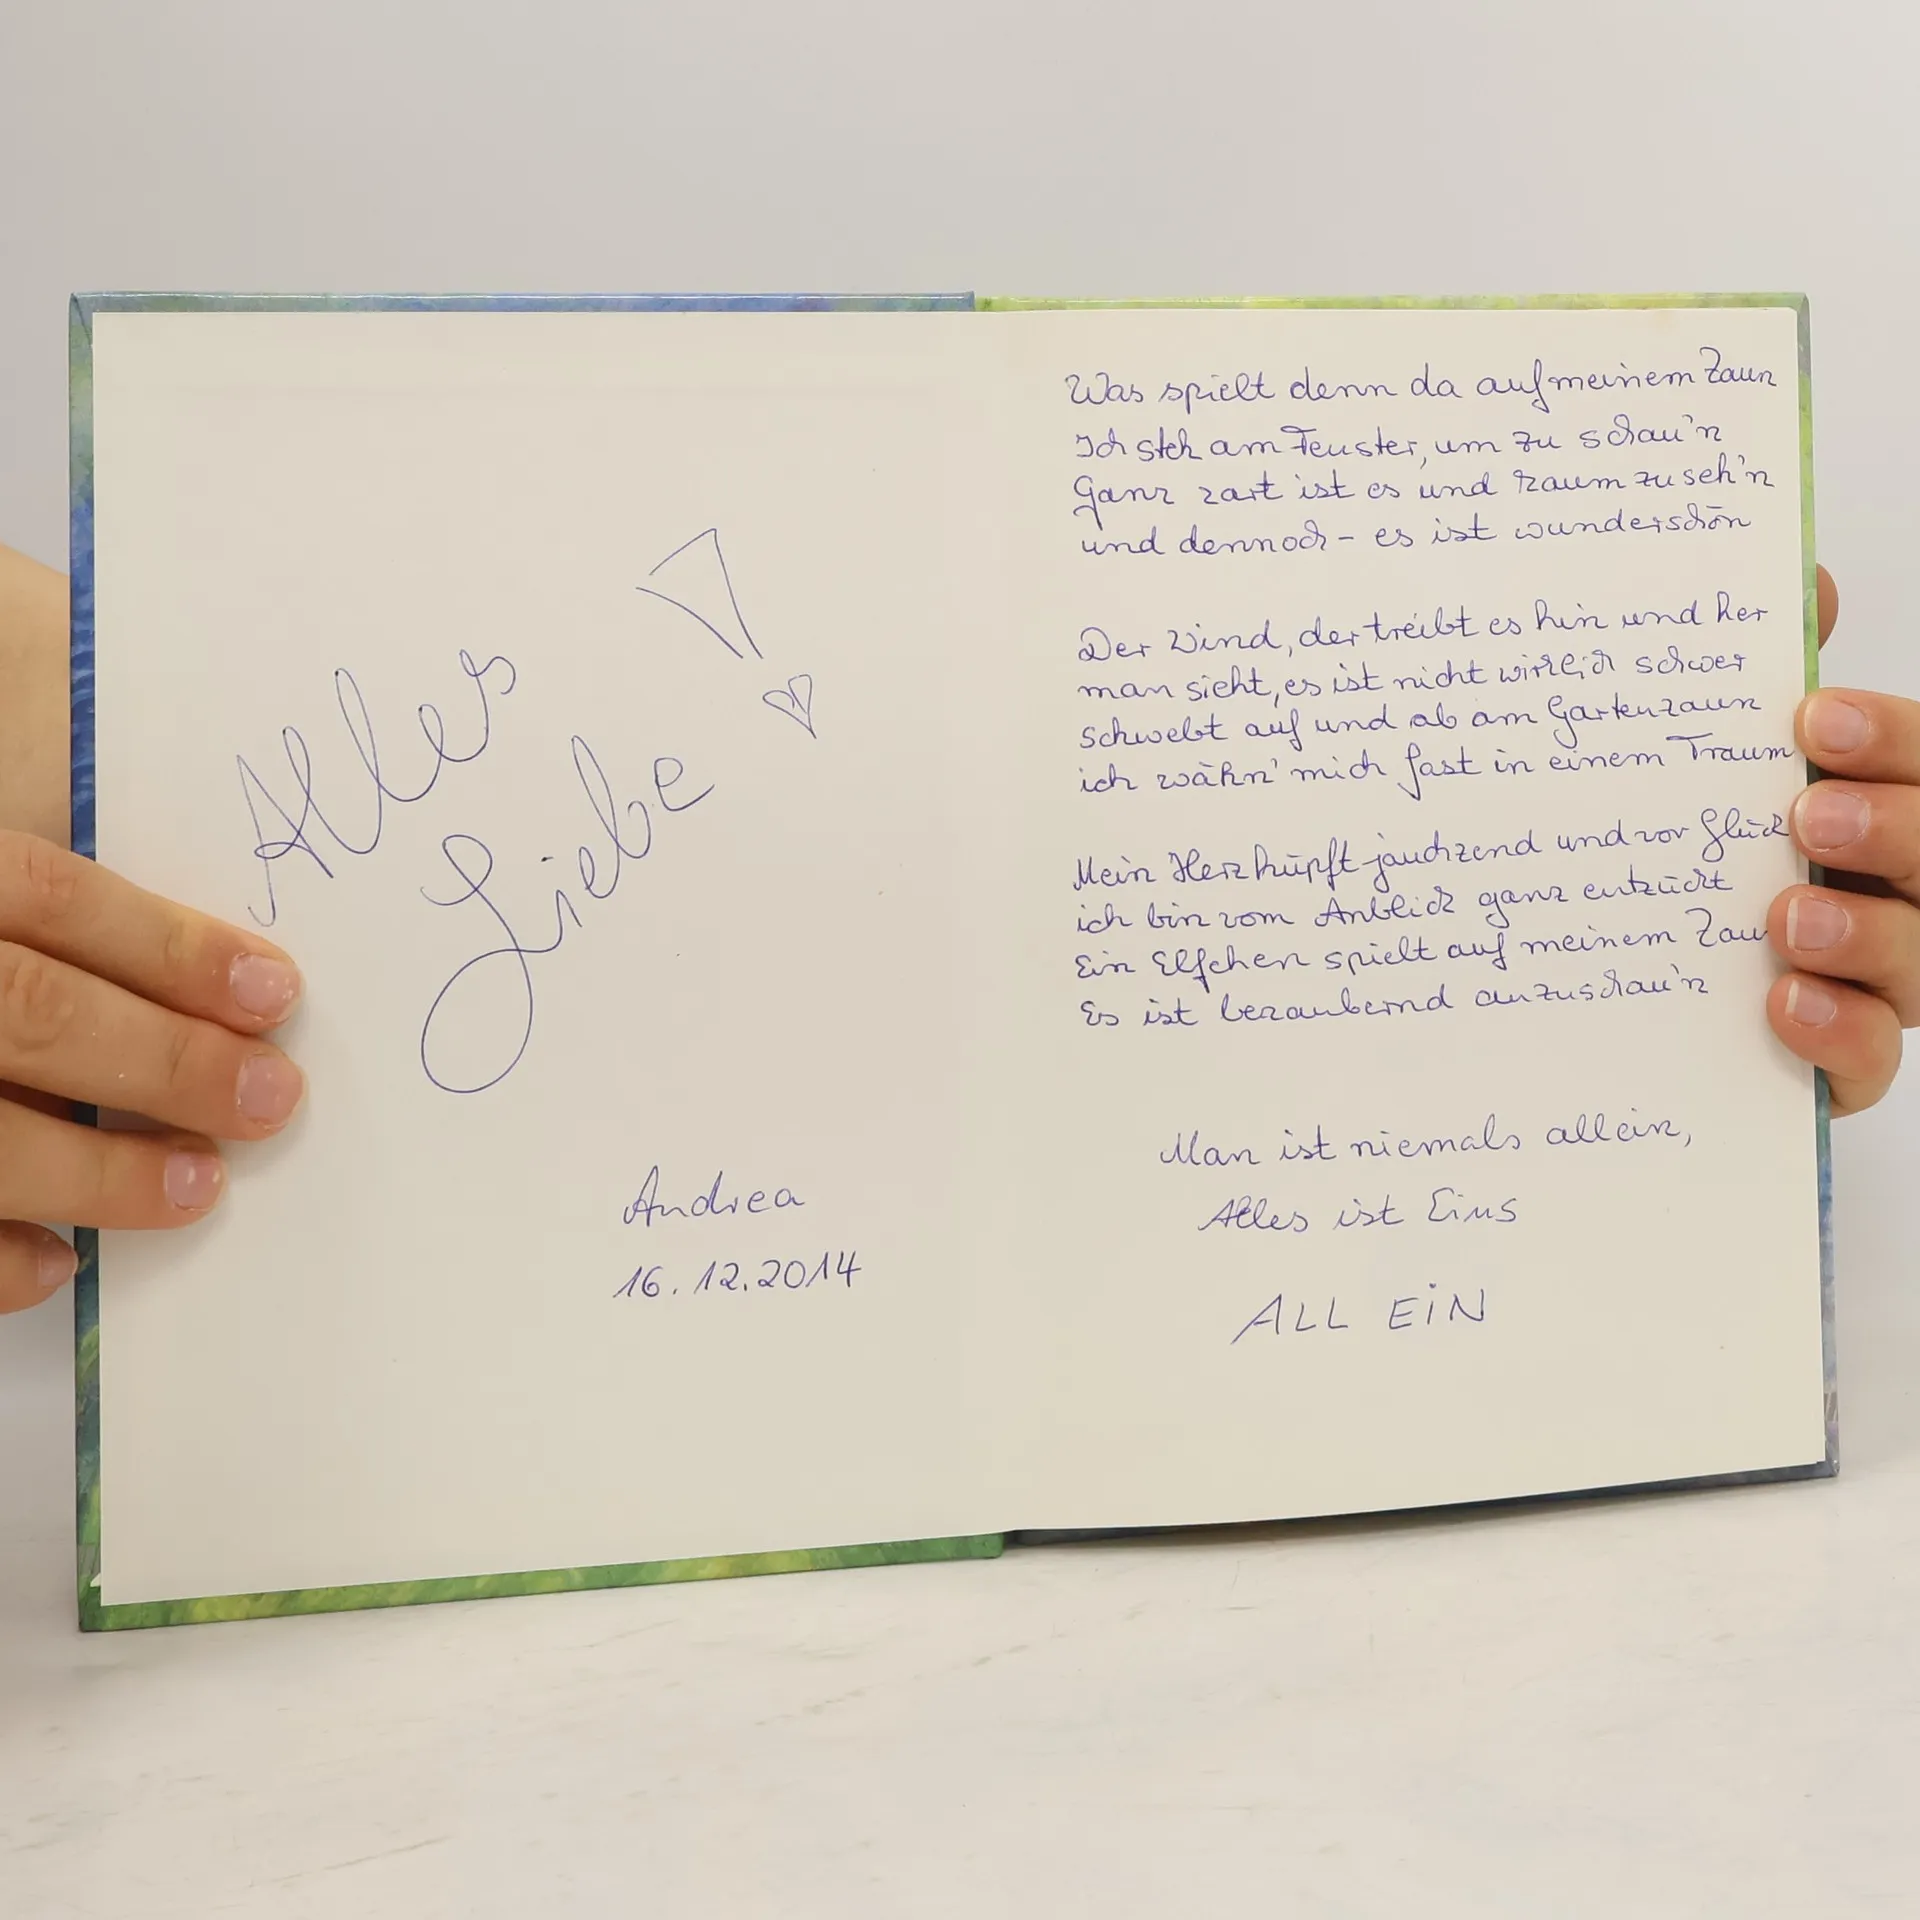 Alles
Liebe !
Andrea
16.12.2014
Was spielt denn da auf meinem Zaun
Ich steh am Fenster, um zu schau'n
Ganz zart ist es und kaum zu seh'n
und dennoch - es ist wunderschön
Der Wind, der treibt es hin und her
man sieht, es ist nicht wirklich schwer
schwebt auf und ab am Gartenzaun
ich wähn' mich fast in einem Traum
Mein Herz hüpft jauchzend und vor Glück
ich bin vom Anblick ganz entzückt
Ein Elfchen spielt auf meinem Zau
Es ist bezaubernd anzuschau'n
Man ist niemals allein,
Alles ist Eins
ALL EiN